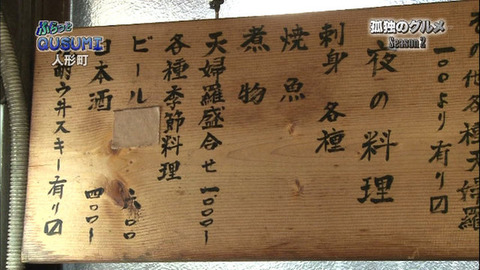 ふらっと
QUSUMI
人形町
孤独のグルメ
Season2
その他各種天婦羅
一〇〇より有り〼
夜の料理
刺身 各種
焼魚
煮物
天婦羅盛合せ 一、〇〇〇
各種季節料理
ビール 六〇〇
日本酒 四〇〇
ウ井スキー有り〼